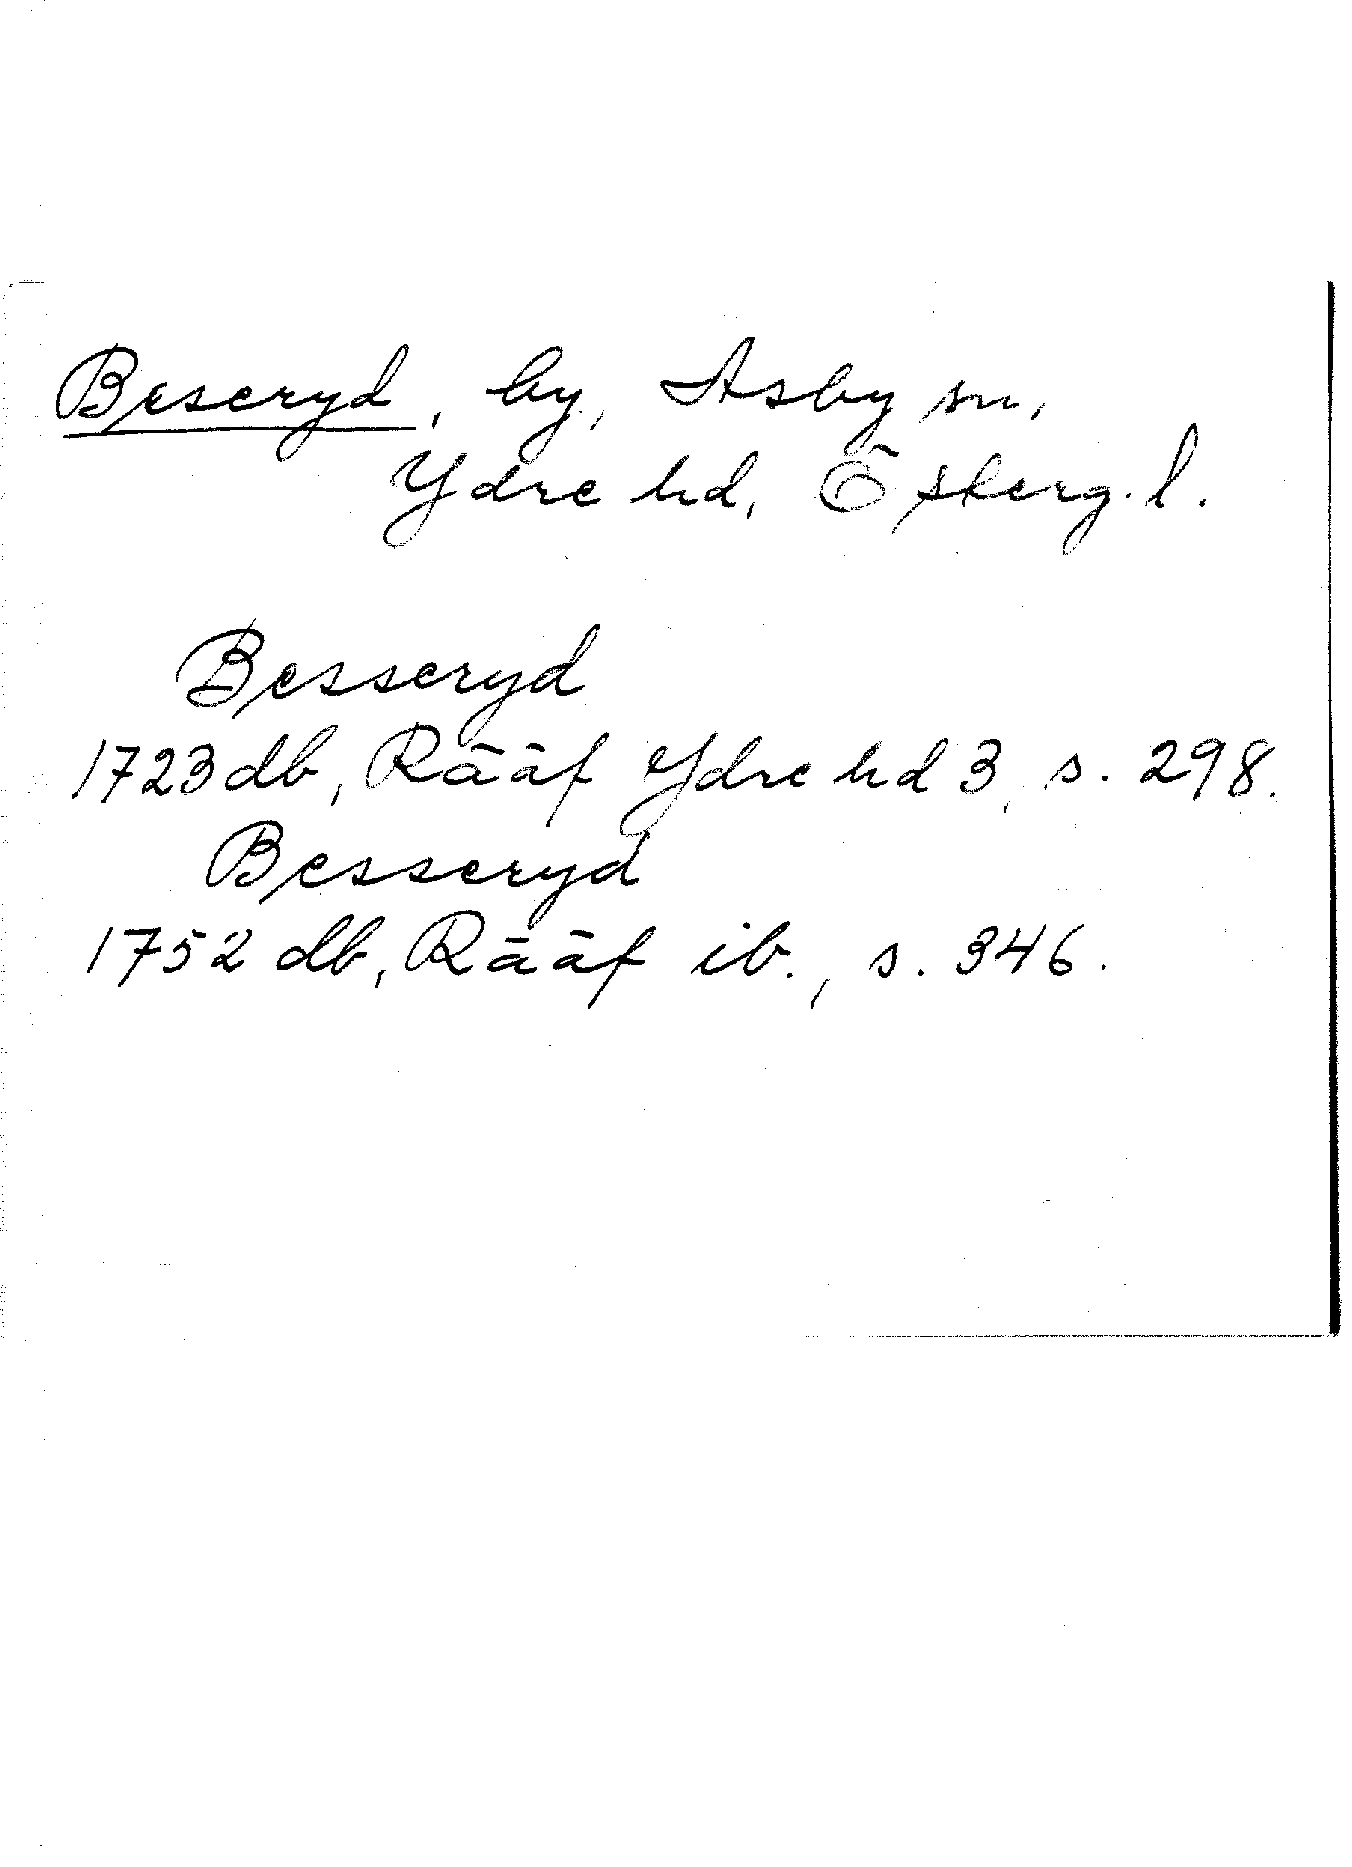 Beseryd, by, Asby sn,
Ydre hd, Österg. l.
Besseryd
1723 db, Rääf Ydre hd 3, s. 298.
Besseryd
1752 db, Rääf ib., s. 346.